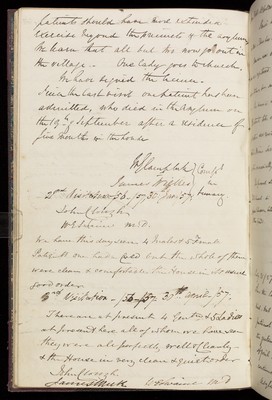 patients should have more extended
exercise beyond the precincts of the asylum
We learn that all but two now go out in
the village. One lady goes to church.
We have signed the licence.
Since the last visit one patient has been
admitted, who died in the asylum on
the 19th September after a residence of
five months in the house
W G Campbell
James Wilkes
Visitation
John Clough
M.D.
We have this day seen 4 males & 5 Female
Patients one have cold but the whole of them
were clean & comfortable the House in its usual
good order
Visitation 56-57. 30th
There are at present 4 Gentn & 5 Ladies
at present & have all of whom we have seen
they were all perfectly well & cleanly
& the House in very clean & quiet order
John Clough
James Mick
M.D